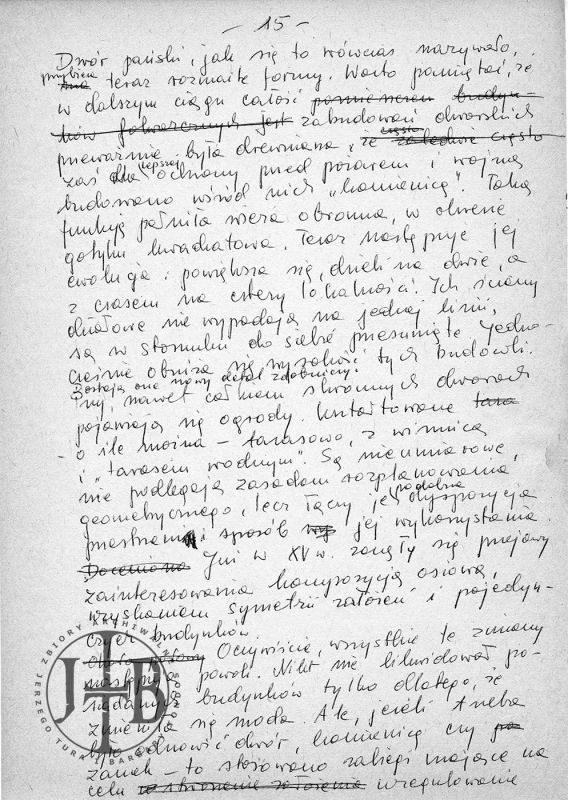 - 15 -
Dwór pański, jak się to wówczas nazywało,
przybiera teraz rozmaite formy. Warto pamiętać, że
w dalszym ciągu całość pomieszczeń budyn-
ków folwarcznych jest zabudowań dworskich
przeważnie była drewniana, że zaledwie często
zaś dla lepszej ochrony przed pożarem i wojną
budowano wśród nich "kamienicę". Taką
funkcję pełniła wieża obronna, w okresie
gotyku kwadratowa. Teraz następuje jej
ewolucja: powiększa się, dzieli na dwie, a
z czasem na cztery lokalności. Ich ściany
działowe nie wypadają na jednej linii,
są w stosunku do siebie przesunięte. Jedno-
cześnie obniża się wysokość tych budowli.
Zostają one nowy detal zdobniczy.
Przy, nawet całkiem skromnych dworach
pojawiają się ogrody. Kształtowane
o ile można - tarasowo, z winnicą
i "tarasem wodnym". Są nieumiarowe,
nie podlegają zasadom rozplanowania
geometrycznego, lecz łączy je podobna dyspozycja
przestrzenna i sposób jej wykorzystania.
Już w XV w. zaczęły się przejawy
zainteresowania kompozycją osiową,
uzyskaniem symetrii założeń i pojedyn-
czych budynków.
Oczywiście, wszystkie te zmiany
następują powoli. Nikt nie likwidował po-
siadanych budynków tylko dlatego, że
zmieniła się moda. Ale, jeżeli trzeba
było odnowić dwór, kamienicę czy
zamek - to stosowano zabiegi mające na
celu uregulowanie
JERZEGO TURA I BARB
ZBIORY ARCHIWALNE
JTB